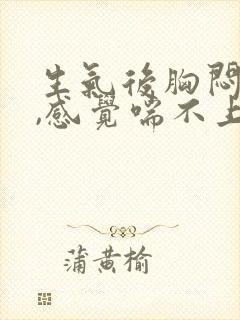 生氣後胸悶
,感覺喘不上
蒲黄榆